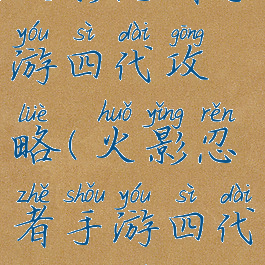 yóu sì dài gōng
游四代攻
lüè huǒ yǐng rěn
略(火影忍
zhě shǒu yóu sì dài
者手游四代